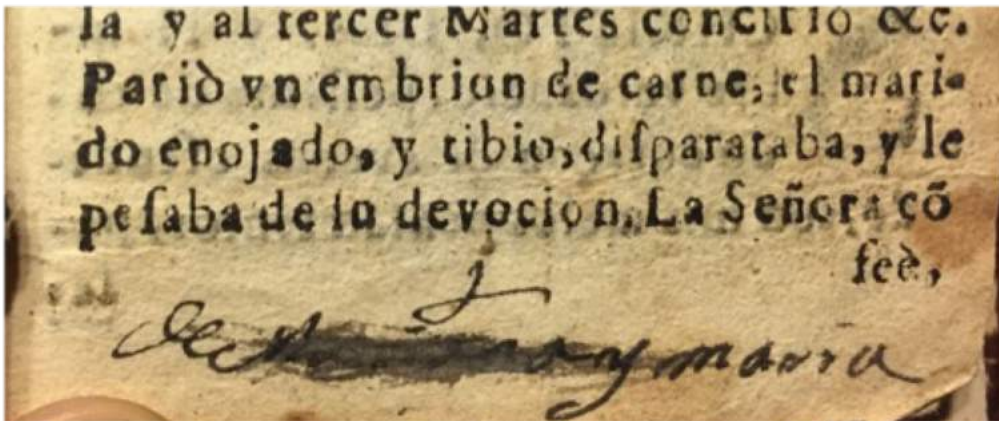 la y al tercer Martes conciriò &c.
Pariò vn embrion de carne, el mari-
do enojado, y tibio, disparataba, y le
pesaba de su devocion. La Señora cõ
feè,
de y maria